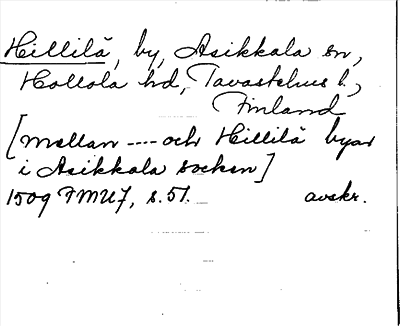 Hillilä, by, Asikkala sn,
Hollola hd, Tavastehus l.,
Finland
[mellan ---- och Hillilä byar
i Asikkala socken]
1509 FMU7, s.51. avskr.